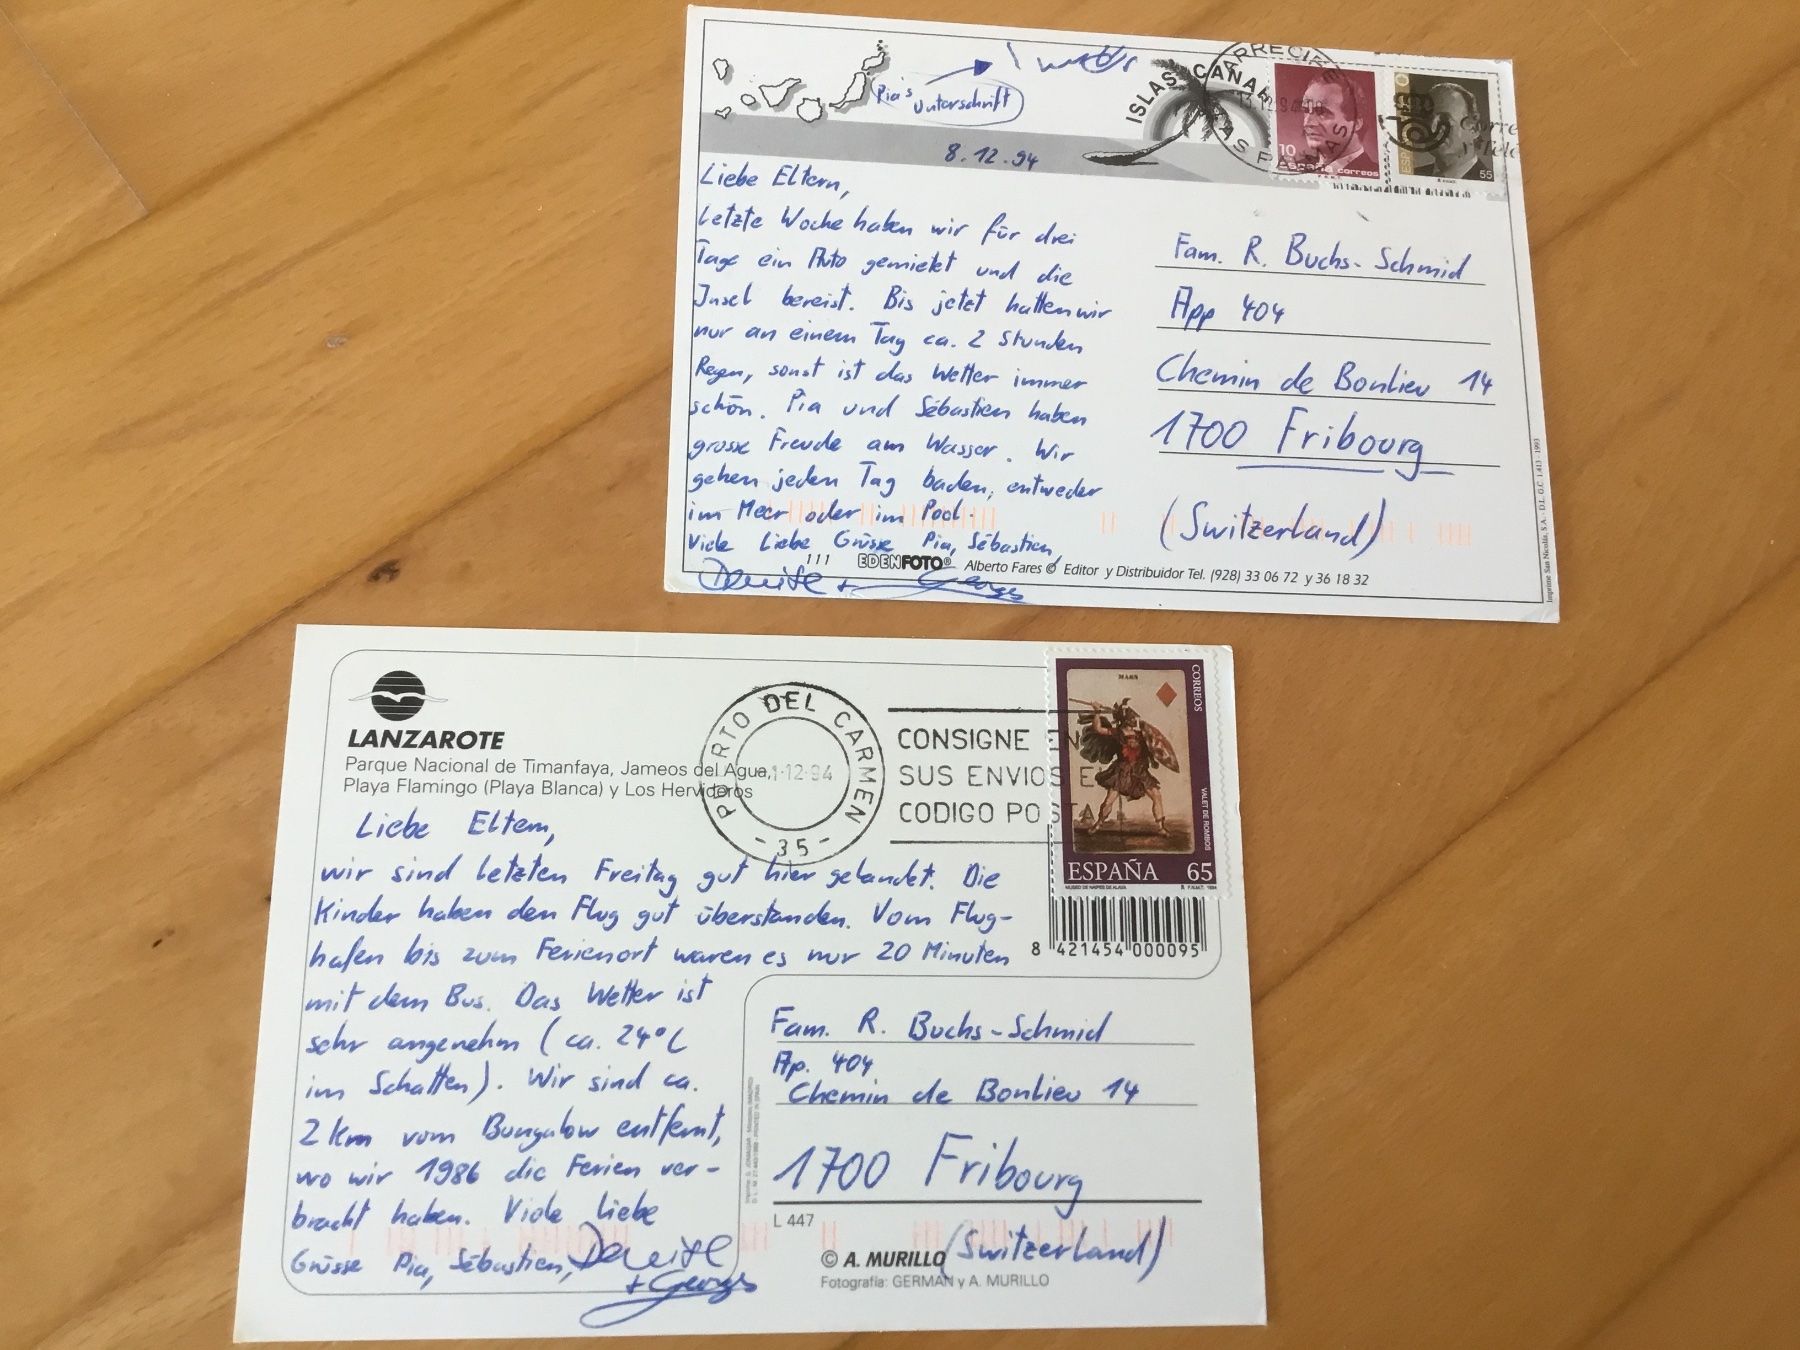 Pia's
Unterschrift
8.12.94
ISLAS CANARIAS
ARRECIFE
LAS PALMAS
10
España correos
55
Liebe Eltern,
Letzte Woche haben wir für drei
Tage ein Auto gemietet und die
Insel bereist. Bis jetzt hatten wir
nur an einem Tag ca. 2 Stunden
Regen, sonst ist das Wetter immer
schön. Pia und Sébastien haben
grosse Freude am Wasser. Wir
gehen jeden Tag baden, entweder
im Meer oder im Pool.
Viele Liebe Grüsse Pia, Sébastien,
Denise + Georges
Fam. R. Buchs-Schmid
App 404
Chemin de Bonlieu 14
1700 Fribourg
(Switzerland)
111 EDENFOTO® Alberto Fares © Editor y Distribuidor Tel. (928) 33 06 72 y 36 18 32
LANZAROTE
Parque Nacional de Timanfaya, Jameos del Agua,
Playa Flamingo (Playa Blanca) y Los Hervideros
PUERTO DEL CARMEN
1-12-94
- 35 -
CONSIGNE EN
SUS ENVIOS EL
CODIGO POSTAL
MARS
CORREOS
VALET DE ROMBOS
ESPAÑA 65
8 421454 000095
Liebe Eltern,
wir sind letzten Freitag gut hier gelandet. Die
Kinder haben den Flug gut überstanden. Vom Flug-
hafen bis zum Ferienort waren es nur 20 Minuten
mit dem Bus. Das Wetter ist
sehr angenehm (ca. 24°C
im Schatten). Wir sind ca.
2 Km vom Bungalow entfernt,
wo wir 1986 die Ferien ver-
bracht haben. Viele Liebe
Grüsse Pia, Sébastien, Denise
+ Georges
Fam. R. Buchs-Schmid
Ap. 404
Chemin de Bonlieu 14
1700 Fribourg
(Switzerland)
L 447
© A. MURILLO
Fotografía: GERMAN y A. MURILLO